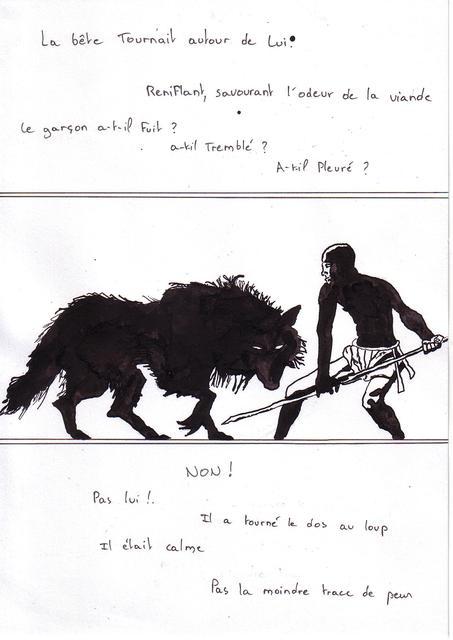 La bête Tournait autour de Lui.
Reniflant, savourant l'odeur de la viande
Le garçon a-t-il Fuit ?
a-t-il Tremblé ?
A-t-il Pleuré ?
NON !
Pas lui !.
Il a tourné le dos au loup
Il était calme
Pas la moindre trace de peur